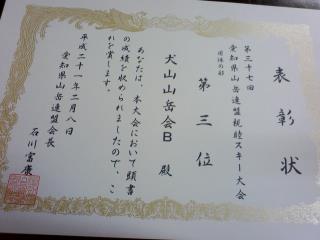 表彰状
第三十七回
愛知県山岳連盟親睦スキー大会
団体の部
第三位
犬山山岳会B 殿
あなたは、本大会において頭書
の成績を収められましたので、こ
れを賞します。
平成二十一年二月八日
愛知県山岳連盟会長
石川富康